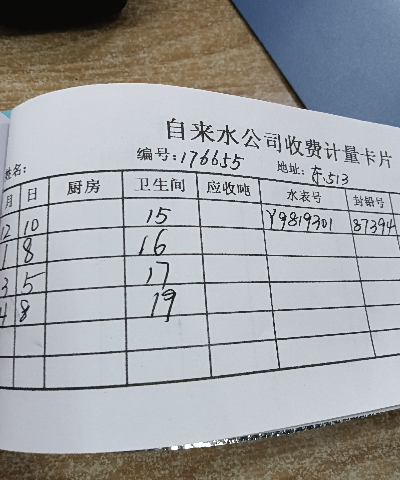 自来水公司收费计量卡片
姓名: 编号:176655 地址:东513
月 日 厨房 卫生间 应收吨 水表号 封铅号
12 10 15 Y9819301 87394
1 8 16
3 5 17
4 8 19